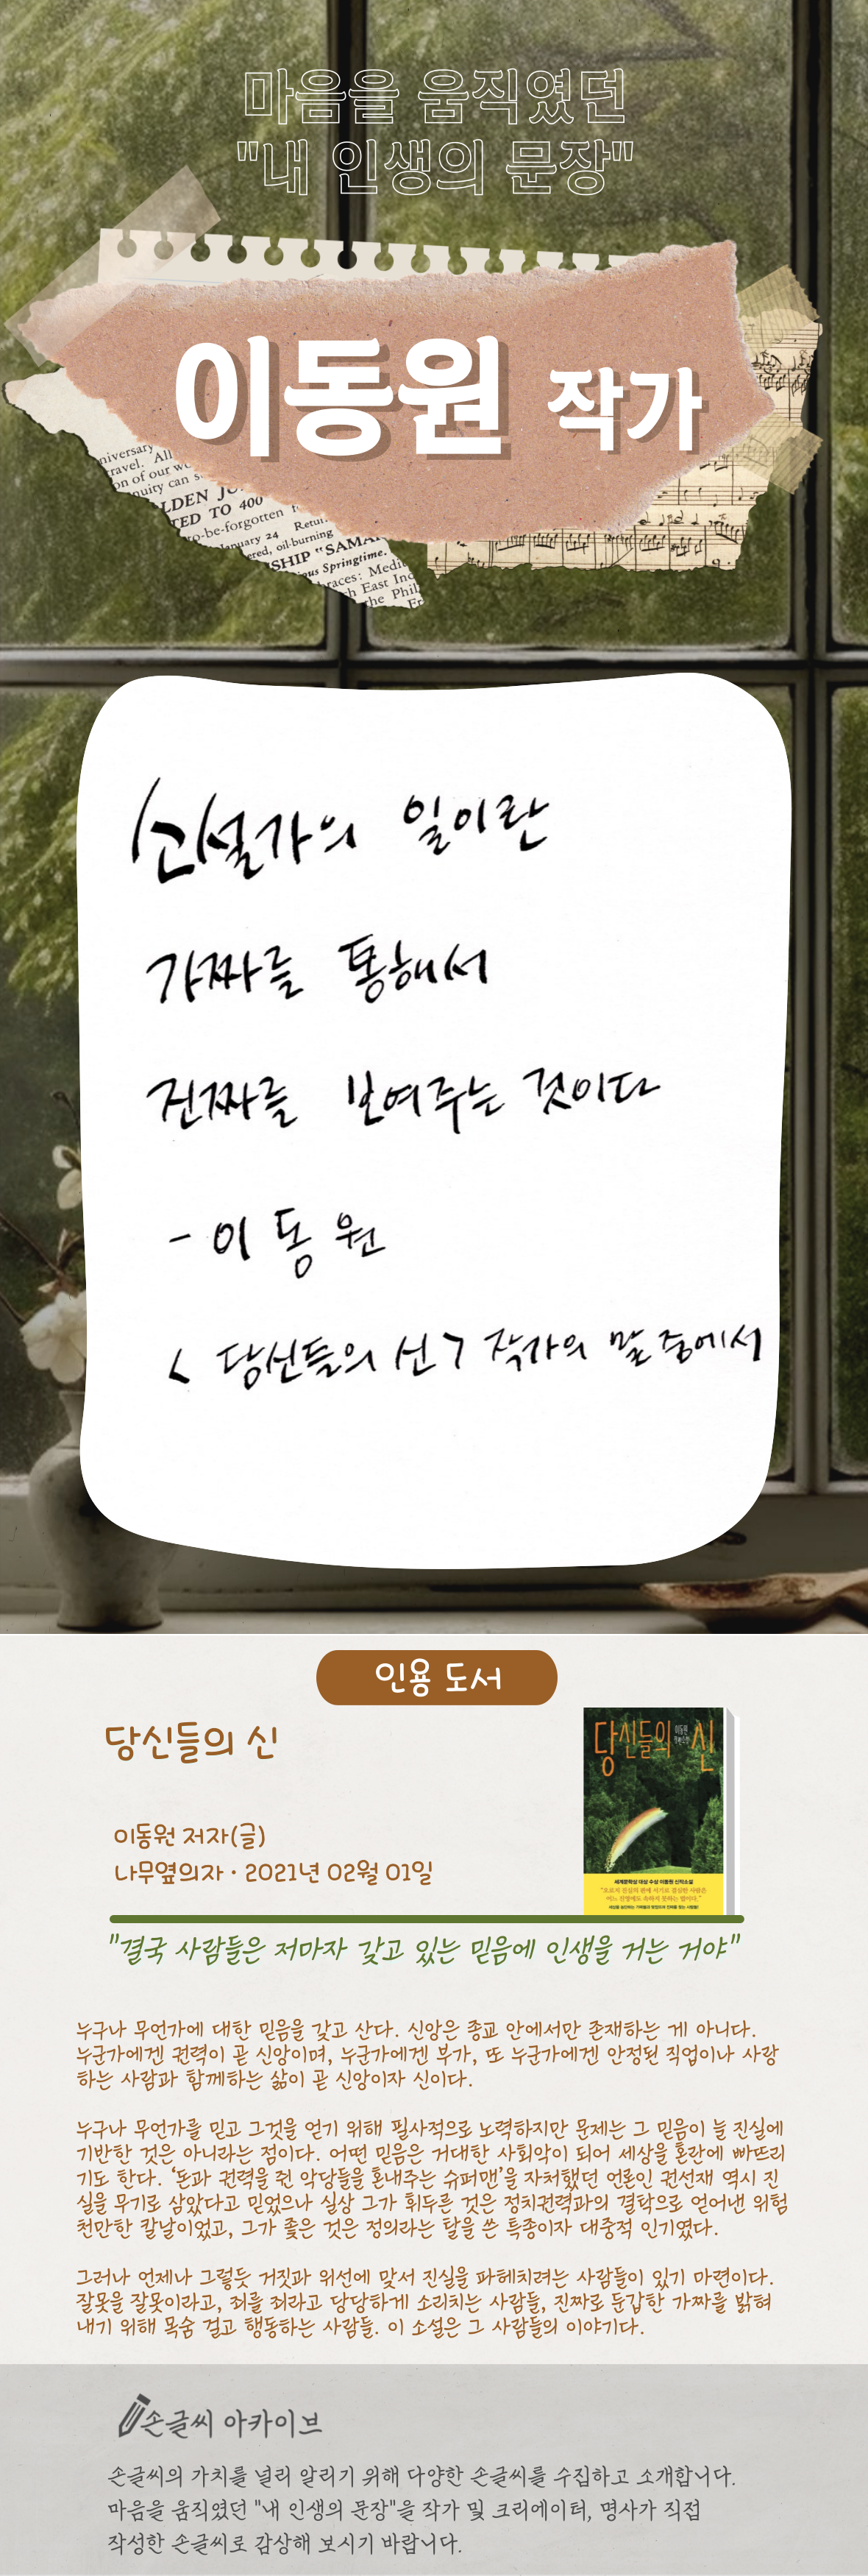 마음을 움직였던
"내 인생의 문장"
이동원 작가
niversary
ravel. All
on of our w
nuity can s
LDEN JU
TED TO 400
o-be-forgotten
January 24 Retur
ered, oil-burning
SHIP "SAMA
ous Springtime.
races: Medi
h East Inc
he Phil
소설가의 일이란
가짜를 통해서
진짜를 보여주는 것이다
- 이동원
< 당신들의 신 > 작가의 말 중에서
인용 도서
당신들의 신
이동원 저자(글)
나무옆의자 · 2021년 02월 01일
당신들의 신
이동원
장편소설
세계문학상 대상 수상 이동원 신작소설
"오로지 진실의 편에 서기로 결심한 사람은
어느 진영에도 속하지 못하는 법이다."
"결국 사람들은 저마자 갖고 있는 믿음에 인생을 거는 거야"
누구나 무언가에 대한 믿음을 갖고 산다. 신앙은 종교 안에서만 존재하는 게 아니다.
누군가에겐 권력이 곧 신앙이며, 누군가에겐 부가, 또 누군가에겐 안정된 직업이나 사랑
하는 사람과 함께하는 삶이 곧 신앙이자 신이다.
누구나 무언가를 믿고 그것을 얻기 위해 필사적으로 노력하지만 문제는 그 믿음이 늘 진실에
기반한 것은 아니라는 점이다. 어떤 믿음은 거대한 사회악이 되어 세상을 혼란에 빠뜨리
기도 한다. ‘돈과 권력을 쥔 악당들을 혼내주는 슈퍼맨’을 자처했던 언론인 권선재 역시 진
실을 무기로 삼았다고 믿었으나 실상 그가 휘두른 것은 정치권력과의 결탁으로 얻어낸 위험
천만한 칼날이었고, 그가 좇은 것은 정의라는 탈을 쓴 특종이자 대중적 인기였다.
그러나 언제나 그렇듯 거짓과 위선에 맞서 진실을 파헤치려는 사람들이 있기 마련이다.
잘못을 잘못이라고, 죄를 죄라고 당당하게 소리치는 사람들, 진짜로 둔갑한 가짜를 밝혀
내기 위해 목숨 걸고 행동하는 사람들. 이 소설은 그 사람들의 이야기다.
손글씨 아카이브
손글씨의 가치를 널리 알리기 위해 다양한 손글씨를 수집하고 소개합니다.
마음을 움직였던 "내 인생의 문장"을 작가 및 크리에이터, 명사가 직접
작성한 손글씨로 감상해 보시기 바랍니다.